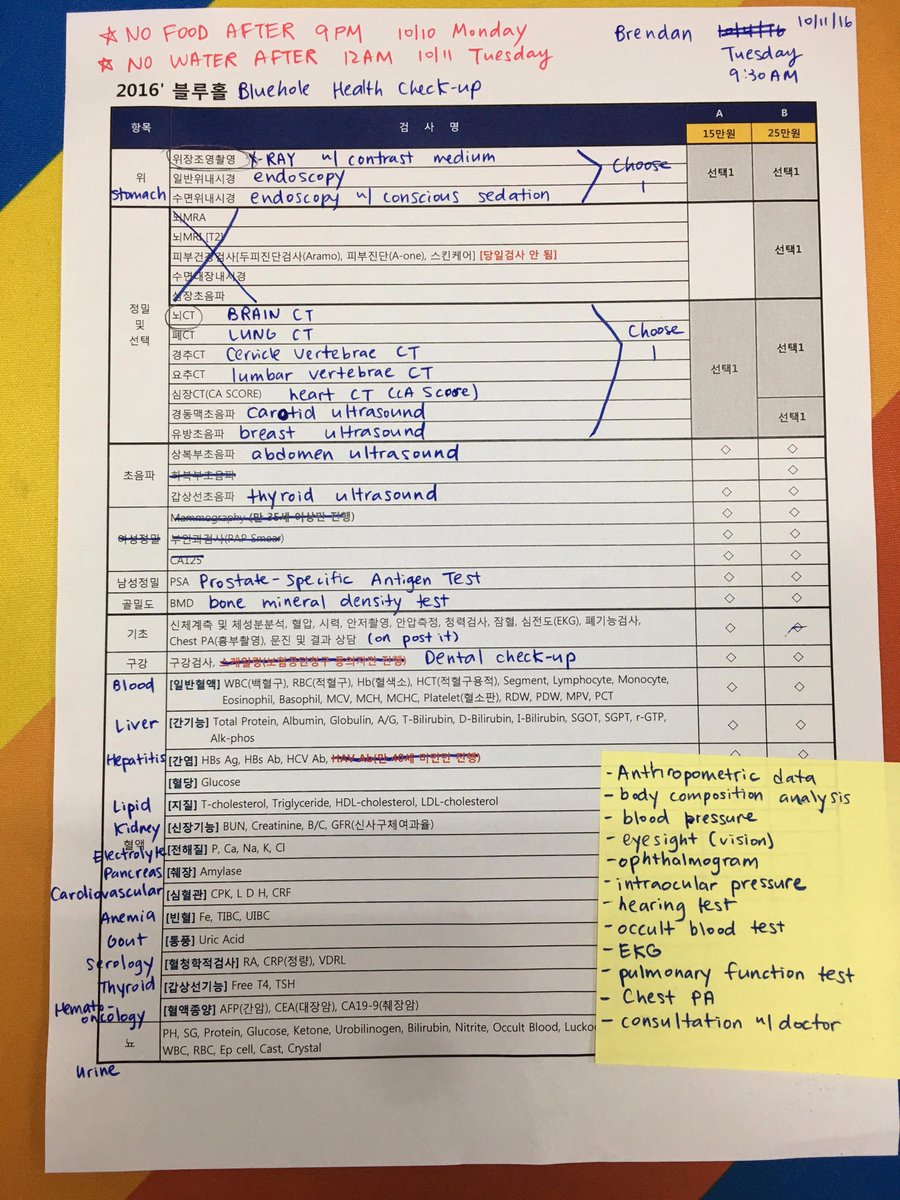 ☆ NO FOOD AFTER 9PM 10/10 Monday
☆ NO WATER AFTER 12AM 10/11 Tuesday
Brendan 10/11/16
Tuesday
9:30AM
2016' 블루홀 Bluehole Health Check-up
항목 검 사 명 A B
15만원 25만원
위 stomach
위장조영촬영 X-RAY w/ contrast medium
일반위내시경 endoscopy
수면위내시경 endoscopy w/ conscious sedation
Choose 1
선택1 선택1
정밀 및 선택
뇌MRA
뇌MRI [T2]
피부건강검사[두피진단검사(Aramo), 피부진단(A-one), 스킨케어] [당일검사 안 됨]
수면대장내시경
심장초음파
선택1
뇌CT BRAIN CT
폐CT LUNG CT
경추CT Cervicle vertebrae CT
요추CT lumbar vertebrae CT
심장CT(CA SCORE) heart CT (CA Score)
경동맥초음파 carotid ultrasound
유방초음파 breast ultrasound
Choose 1
선택1 선택1
선택1
초음파
상복부초음파 abdomen ultrasound ◇ ◇
하복부초음파 ◇
갑상선초음파 thyroid ultrasound ◇ ◇
여성정밀
Mammography (만 35세 이상만 진행) ◇ ◇
부인과검사(PAP Smear) ◇ ◇
CA125 ◇ ◇
남성정밀 PSA Prostate-Specific Antigen Test ◇ ◇
골밀도 BMD bone mineral density test ◇ ◇
기초 신체계측 및 체성분분석, 혈압, 시력, 안저촬영, 안압측정, 청력검사, 잠혈, 심전도(EKG), 폐기능검사,
Chest PA(흉부촬영), 문진 및 결과 상담 (on post it) ◇ ◇
구강 구강검사, 스케일링(보험공단청구 동의자만 진행) Dental check-up ◇ ◇
혈액
Blood [일반혈액] WBC(백혈구), RBC(적혈구), Hb(혈색소), HCT(적혈구용적), Segment, Lymphocyte, Monocyte,
Eosinophil, Basophil, MCV, MCH, MCHC, Platelet(혈소판), RDW, PDW, MPV, PCT ◇ ◇
Liver [간기능] Total Protein, Albumin, Globulin, A/G, T-Bilirubin, D-Bilirubin, I-Bilirubin, SGOT, SGPT, r-GTP,
Alk-phos ◇ ◇
Hepatitis [간염] HBs Ag, HBs Ab, HCV Ab, HAV Ab(만 40세 미만만 진행) ◇ ◇
[혈당] Glucose
Lipid [지질] T-cholesterol, Triglyceride, HDL-cholesterol, LDL-cholesterol
Kidney [신장기능] BUN, Creatinine, B/C, GFR(신사구체여과율)
Electrolyte [전해질] P, Ca, Na, K, Cl
Pancreas [췌장] Amylase
Cardiovascular [심혈관] CPK, L D H, CRF
Anemia [빈혈] Fe, TIBC, UIBC
Gout [통풍] Uric Acid
Serology [혈청학적검사] RA, CRP(정량), VDRL
Thyroid [갑상선기능] Free T4, TSH
Hemato-oncology [혈액종양] AFP(간암), CEA(대장암), CA19-9(췌장암)
뇨 PH, SG, Protein, Glucose, Ketone, Urobilinogen, Bilirubin, Nitrite, Occult Blood,
WBC, RBC, Ep cell, Cast, Crystal
urine
- Anthropometric data
- body composition analysis
- blood pressure
- eyesight (vision)
- ophthalmogram
- intraocular pressure
- hearing test
- occult blood test
- EKG
- pulmonary function test
- Chest PA
- consultation w/ doctor